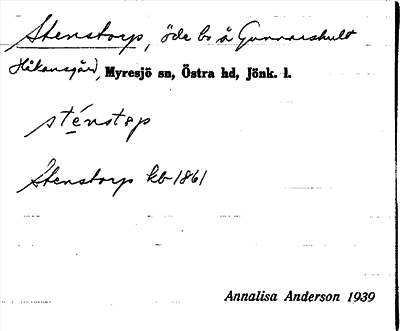 Stenstorp, öde bs å Gunnarshult
Håkansgård, Myresjö sn, Östra hd, Jönk. l.
sténstɷp
Stenstorp kb 1861
Annalisa Anderson 1939